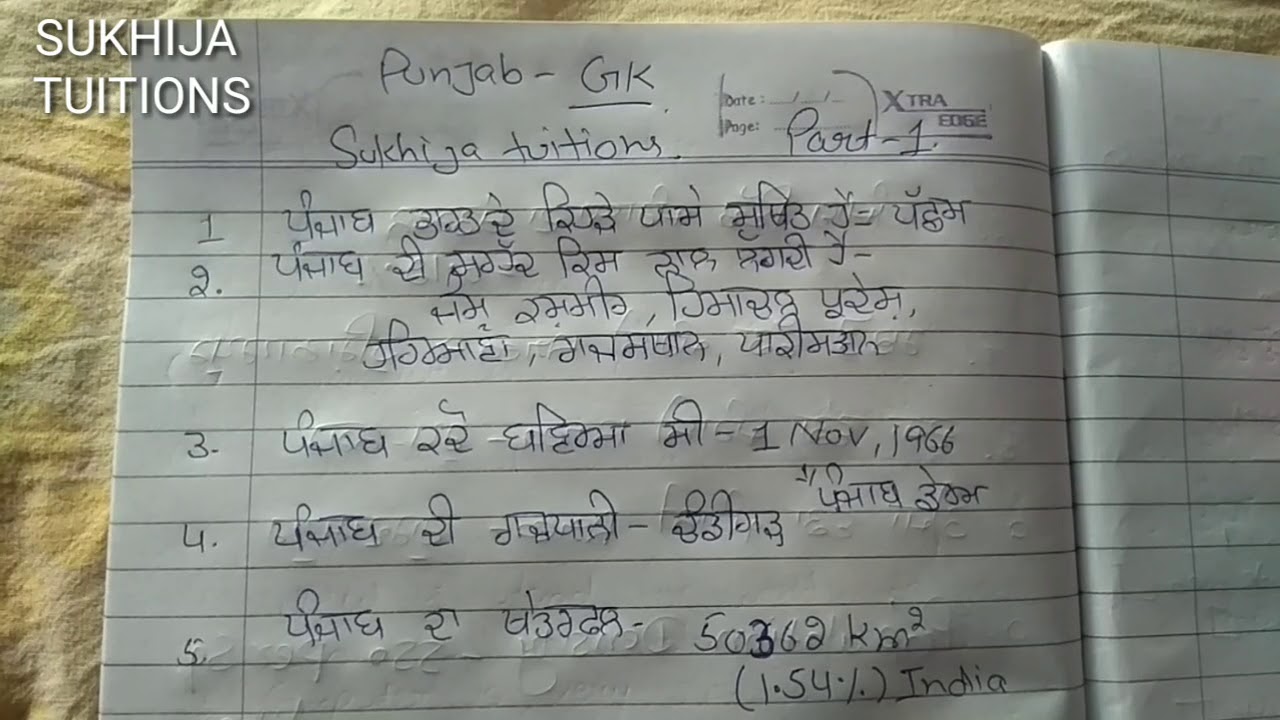 SUKHIJA
TUITIONS
Punjab - GK
Date: / /
Page:
XTRA
EDGE
Sukhija tuitions. Part-1.
1 ਪੰਜਾਬ ਭਾਰਤ ਦੇ ਕਿਹੜੇ ਪਾਸੇ ਸਥਿਤ ਹੈ- ਪੱਛਮ
2. ਪੰਜਾਬ ਦੀ ਸਰਹੱਦ ਕਿਸ ਨਾਲ ਲੱਗਦੀ ਹੈ-
ਜੰਮੂ ਕਸ਼ਮੀਰ, ਹਿਮਾਚਲ ਪ੍ਰਦੇਸ਼,
ਹਰਿਆਣਾ, ਰਾਜਸਥਾਨ, ਪਾਕੀਸਤਾਨ
3. ਪੰਜਾਬ ਕਦੋਂ ਬਣਿਆ ਸੀ - 1 Nov, 1966
ਪੰਜਾਬ ਡੇਅ
4. ਪੰਜਾਬ ਦੀ ਰਾਜਧਾਨੀ - ਚੰਡੀਗੜ੍ਹ
5. ਪੰਜਾਬ ਦਾ ਖੇਤਰਫਲ - 50362 km²
(1.54%) India